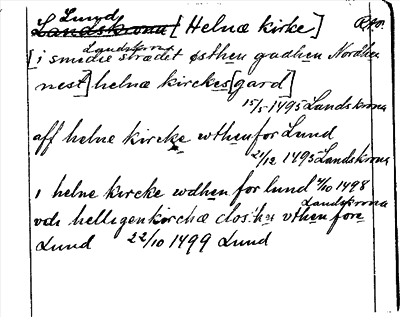 Lund
Landskrona [Helnæ kirke]
[i smidie strædet østhen gadhen Nordhen
Landskrona
nest] helnæ kirckes [gard]
15/5 1495 Landskrona
aff helne kircke wthenfor Lund
21/12 1495 Landskrona
i helne kircke wdhen for lund 4/10 1498
Landskrona
vdi helligenkirchæ vthen fore
Lund 22/10 1499 Lund